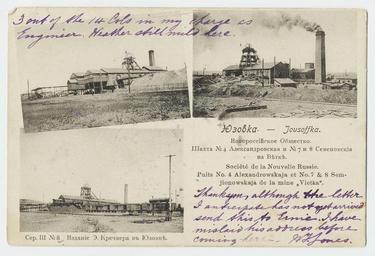 3 out of the 14 Cols in my charge as
Engineer. Heather still mild here.
Юзовка — Jousoffka.
Новороссійское Общество.
Шахта № 4 Александровская и № 7 и 8 Семеновскія
на Вѣткѣ.
Société de la Nouvelle Russie.
Puits No. 4 Alexandrowskaja et No. 7 & 8 Sem-
jionowskaja de la mine „Vietka".
Thankyou, although the letter
I anticipate has not yet arrived
send this to Ernie. I have
mislaid his address before
coming here. A L Jones.
Сер. III № 8 Изданіе Э. Кречмера въ Юзовкѣ.